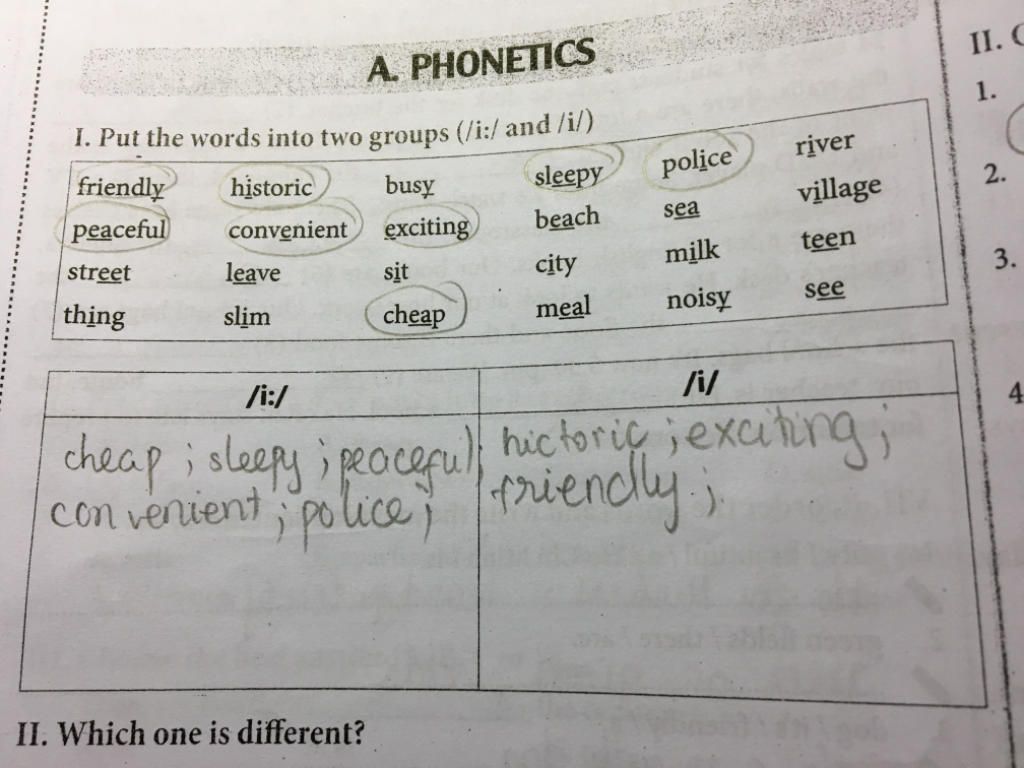 A. PHONETICS
II. C
I. Put the words into two groups (/i:/ and /i/)
1.
friendly historic busy sleepy police river
2.
peaceful convenient exciting beach sea village
street leave sit city milk teen
3.
thing slim cheap meal noisy see
/i:/ /i/
4
cheap ; sleepy ; peaceful ; hictoric ; exciting ;
convenient ; police ; friendly ;
II. Which one is different?